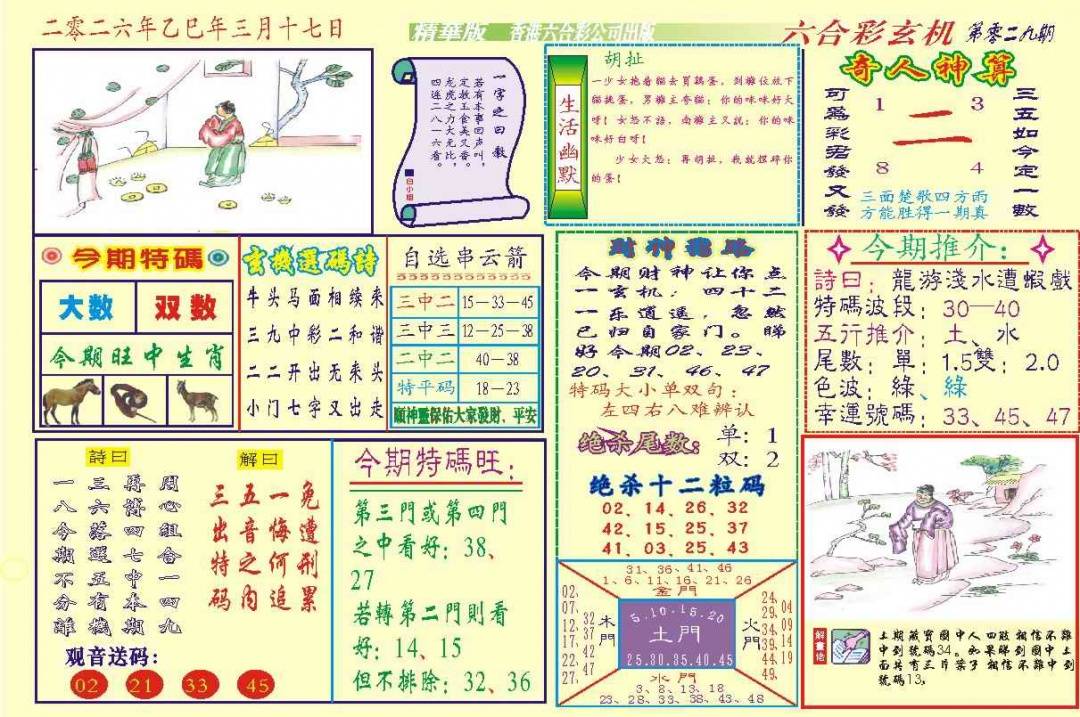 二零二六年乙巳年三月十七日
精華版 香港六合彩公司出版
六合彩玄机 第零二九期
一字之曰数
若有本事回声叫，
定教玉食美又香。
龙虎之力大无比，
四连二八一六看。
白小姐
生活幽默
胡扯
一少女抱着貓去買鷄蛋，到攤位放下
貓挑蛋，男攤主夸貓：你的咪咪好大
呀！女怒不語，南攤主又說：你的咪
咪好白呀！
少女大怒：再胡扯，我就捏碎你
的蛋！
奇人神算
可爲彩君發又發
1 3
二
8 4
三五如今定一數
三面楚歌四方雨
方能胜得一期真
今期特碼
大数 双数
今期旺中生肖
玄機選碼詩
牛头马面相续来
三九中彩二和谐
二二开出无来头
小门七字又出走
自选串云箭
三中二 15—33—45
三中三 12—25—38
二中二 40—38
特平码 18—23
順神靈保佑大家發財、平安
财神
今期财神让你点
一玄机：四十二
一乐逍遥，忽然
已归自家门。睇
好今期02、23、
20、31、46、47
特码大小单双句：
左四右八难辨认
绝杀尾数：
单：1
双：2
绝杀十二粒码
02、14、26、32
42、15、25、37
41、03、25、43
今期推介：
詩曰：龍游淺水遭蝦戲
特碼波段：30—40
五行推介：土、水
尾數：單：1.5雙：2.0
色波：綠、綠
幸運號碼：33、45、47
詩曰
周心組合一四九
再博四七中本期
三六落選五有機
一八今期不分離
解曰
免遭刑累
一悔何追
五音之内
三出特码
观音送码：
02 21 33 45
今期特碼旺：
第三門或第四門
之中看好：38、
27
若轉第二門則看
好：14、15
但不排除：32、36
31、36、41、46
1、6、11、16、21、26
金門
02、07、12、17、22、27、
32、37、42、47
木門
5.10.15.20
土門
25.30.35.40.45
火門
24、29、34、39、44、49、
04、09、14、19
水門
3、8、13、18
23、28、33、38、43、48
解畫佬
上期藏寶圖中人四肢相信不難
中到號碼34。如果睇到圖中上
面共有三片葉子相信不難中到
號碼13。